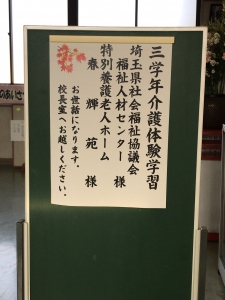 三学年介護体験学習
埼玉県社会福祉協議会
福祉人材センター 様
特別養護老人ホーム
春輝苑 様
お世話になります。
校長室へお越しください。